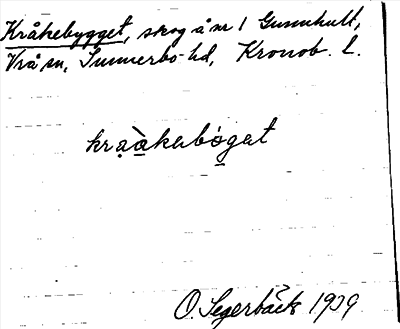 Kråkebygget, skog å nr 1 Gunnhult,
Vrå sn, Sunnerbo hd, Kronob. L.
kra̱à̱kabò̱gat
O. Segerbäck 1939